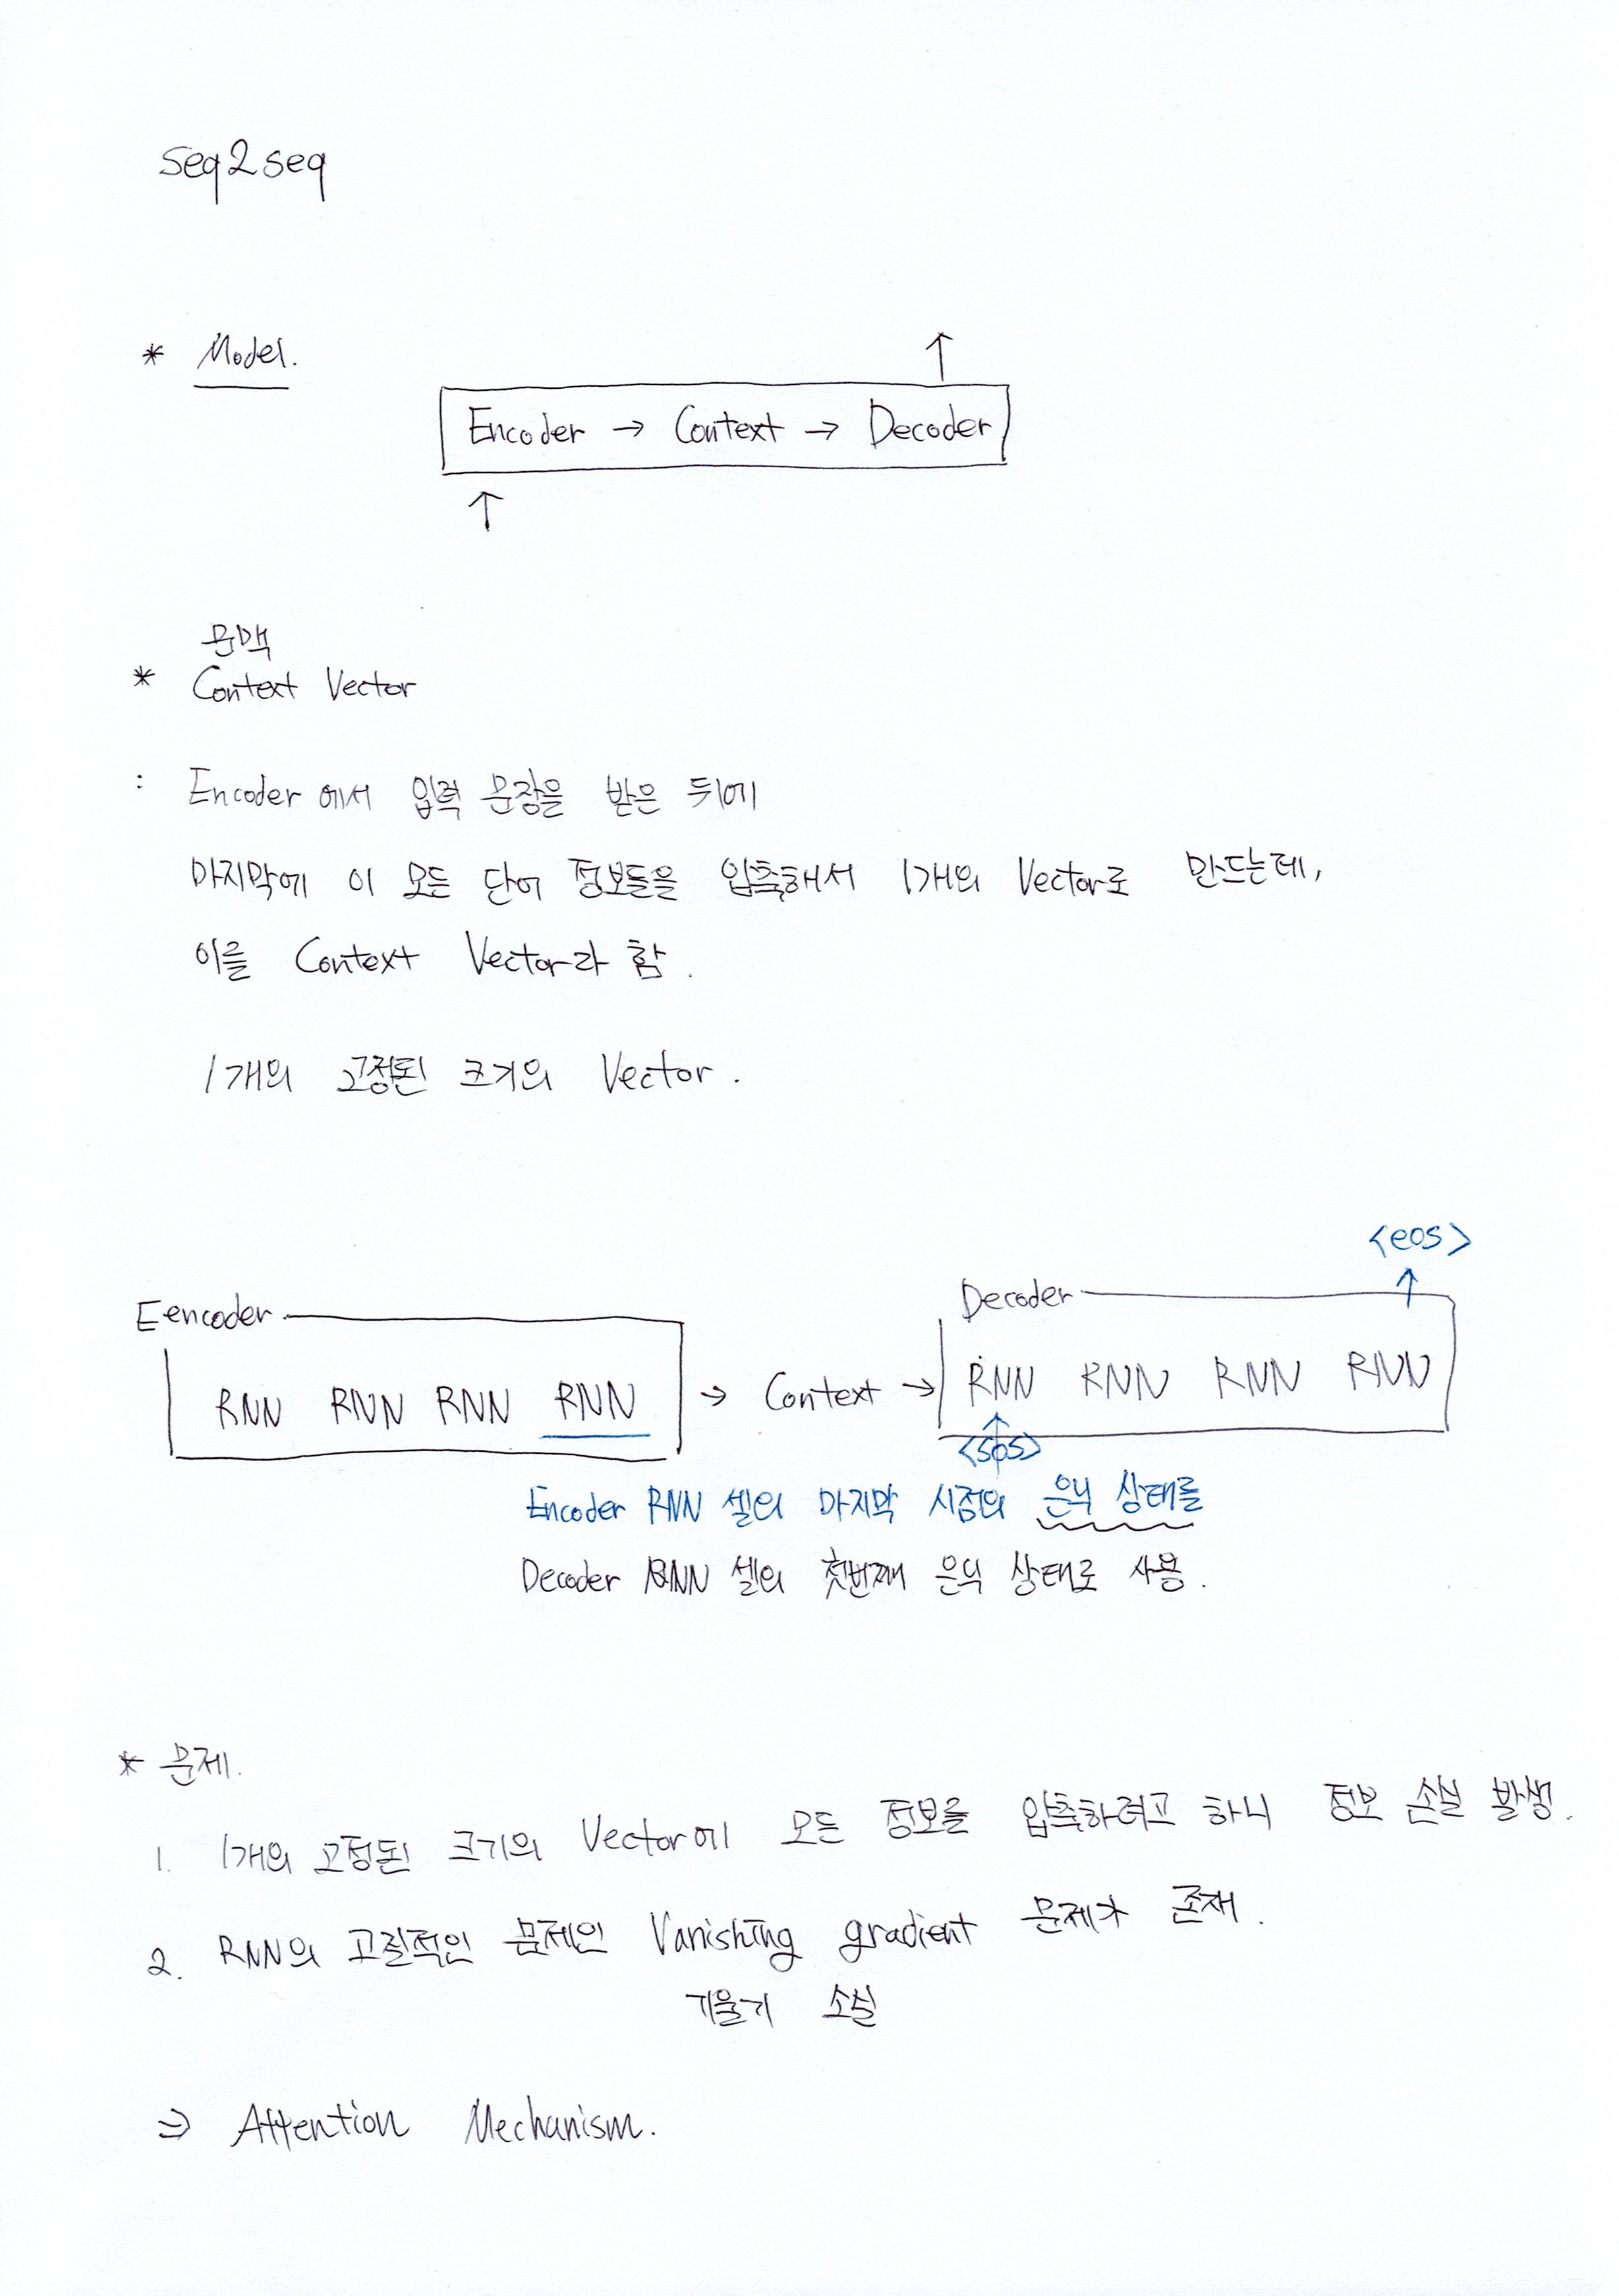 seq2seq
* Model.
↑
Encoder → Context → Decoder
↑
문맥
* Context Vector
: Encoder에서 입력 문장을 받은 뒤에
마지막에 이 모든 단어 정보들을 압축해서 1개의 Vector로 만드는데,
이를 Context Vector라 함.
1개의 고정된 크기의 Vector.
<eos>
↑
Eencoder
Decoder
RNN RNN RNN RNN → Context → RNN RNN RNN RNN
↑
<sos>
Encoder RNN 셀의 마지막 시점의 은닉 상태를
Decoder RNN 셀의 첫번째 은닉 상태로 사용.
* 문제.
1. 1개의 고정된 크기의 Vector에 모든 정보를 압축하려고 하니 정보 손실 발생.
2. RNN의 고질적인 문제인 Vanishing gradient 문제가 존재.
기울기 소실
⇒ Attention Mechanism.